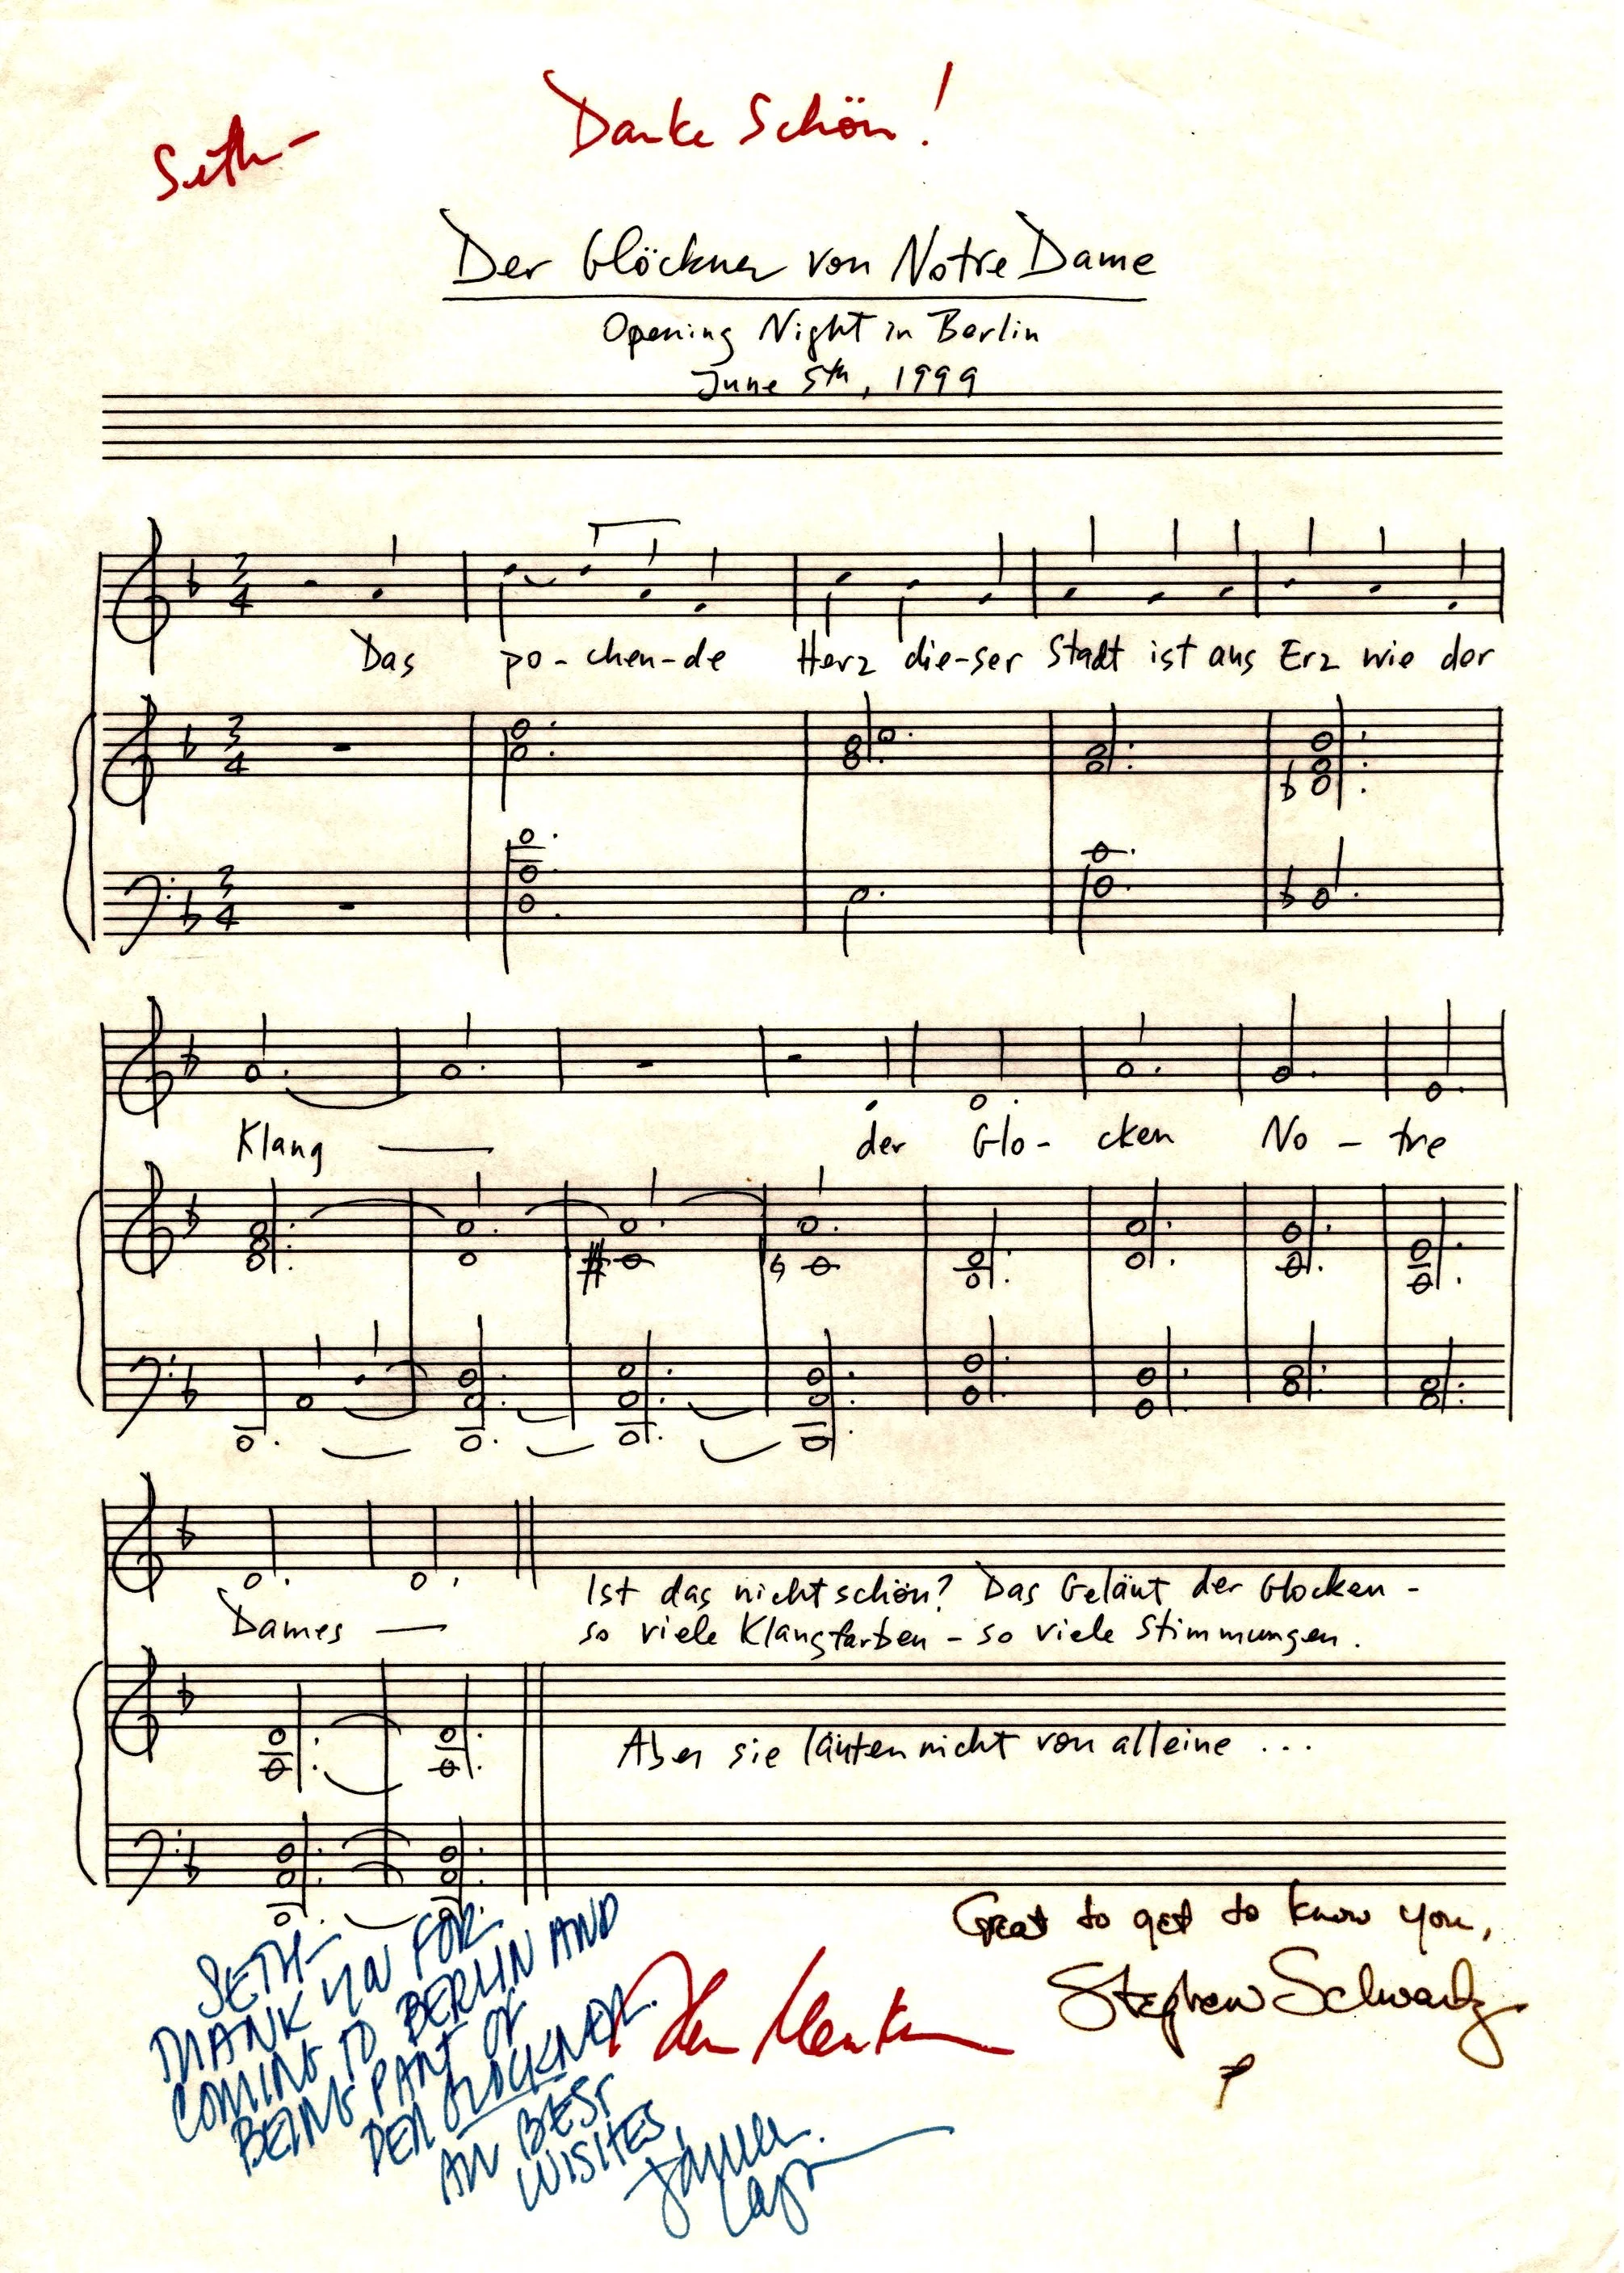 Seth-
Danke Schön!
Der Glöckner von Notre Dame
Opening Night in Berlin
June 5th, 1999
3 4
Das po-chen-de Herz die-ser Stadt ist aus Erz wie der
3 4
3 4
Klang der Glo-cken No-tre
Dames
Ist das nicht schön? Das Geläut der Glocken -
so viele Klangfarben - so viele Stimmungen.
Aber sie läuten nicht von alleine ...
SETH-
THANK YOU FOR
COMING TO BERLIN AND
BEING PART OF
DER GLOCKNER.
ALL BEST
WISHES,
James
Lapine
Alan Menken
Great to get to know you,
Stephen Schwartz